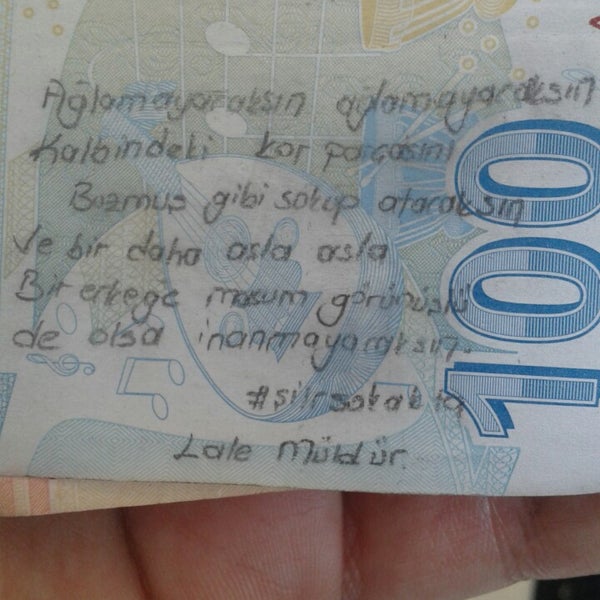 Ağlamayaraksın ağlamayaraksın
Kalbindeki kor parçasını
Buzmuş gibi sokup ataraksın
Ve bir daha asla asla
Bir erkeğe masum görünüşlü
de olsa inanmayaraksın.
#şiirsokakta
Lale Müldür.
100